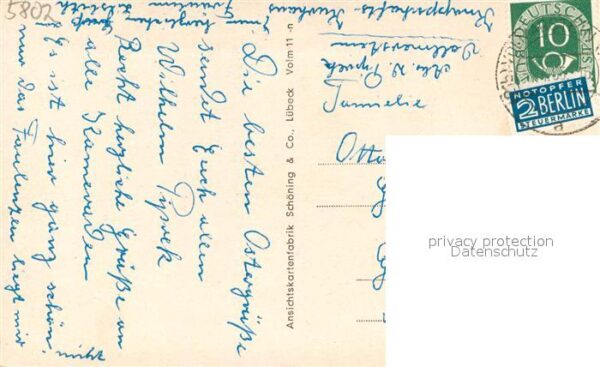 5802
Die besten Ostergrüße
sendet Euch allen
Wilhelm
Recht herzliche Grüße an
alle Kameraden
Es ist hier ganz schön!
nur das Faulenzen liegt mir
nicht
Ansichtskartenfabrik Schöning & Co., Lübeck Volm 11 -n
Knappschafts-Kurhaus
Volmarstein
Abs. W.
Familie
Otto
DEUTSCHE
10
NOTOPFER
2 BERLIN
STEUERMARKE
privacy protection
Datenschutz